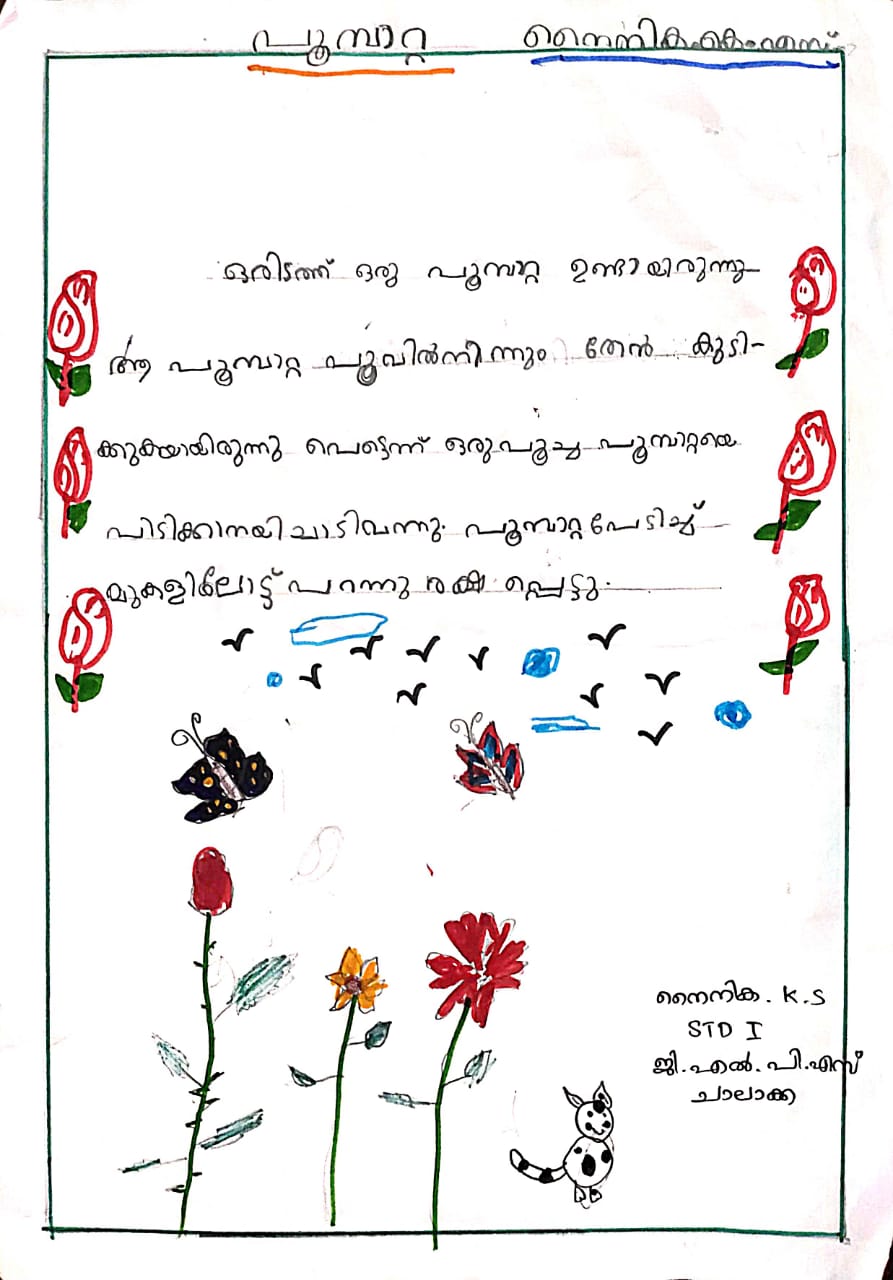 പൂമ്പാറ്റ നൈനിക.കെ.എസ്
ഒരിടത്ത് ഒരു പൂമ്പാറ്റ ഉണ്ടായിരുന്നു
ആ പൂമ്പാറ്റ പൂവിൽനിന്നും തേൻ കുടി-
ക്കുകയായിരുന്നു പെട്ടെന്ന് ഒരു പൂച്ച പൂമ്പാറ്റയെ
പിടിക്കാനയി ചാടിവന്നു. പൂമ്പാറ്റ പേടിച്ച്
മുകളിലോട്ട് പറന്നു രക്ഷ പ്പെട്ടു.
നൈനിക. K.S
STD I
ജി.എൽ.പി.എസ്
ചാലാക്ക